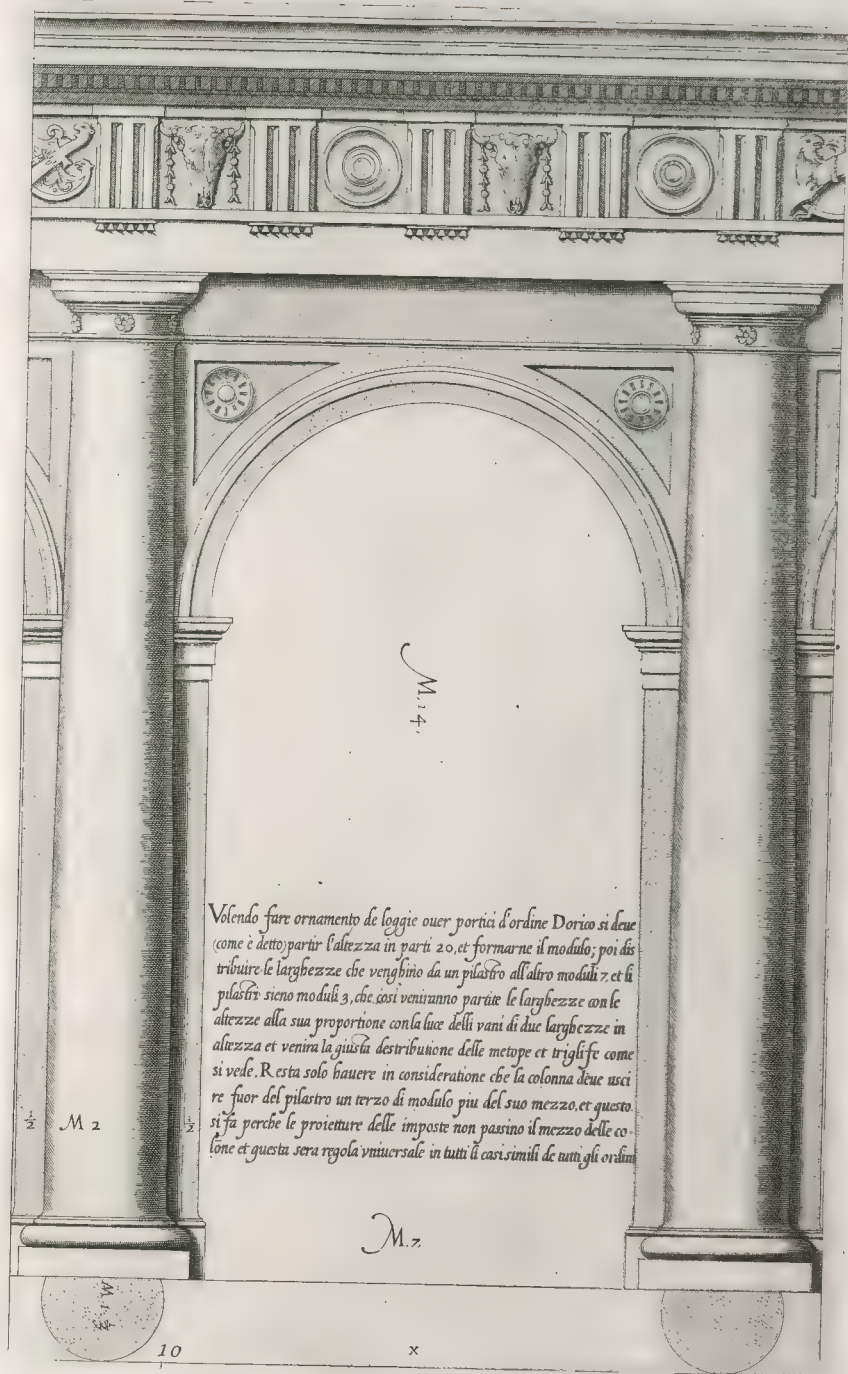 M. 14.
Volendo fare ornamento de loggie ouer portici d'ordine Dorico si deue
(come è detto) partir l'altezza in parti 20, et formarne il modulo; poi dis
tribuire le larghezze che venghino da un pilastro all'altro moduli 7, et li
pilastri sieno moduli 3, che così veniranno partite le larghezze con le
altezze alla sua proportione con la luce delli vani di due larghezze in
altezza et venira la giusta destributione delle metope et triglife come
si vede. Resta solo hauere in consideratione che la colonna deue usci
re fuor del pilastro un terzo di modulo piu del suo mezzo, et questo
si fa perche le proietture delle imposte non passino il mezzo delle co-
lōne et questa sera regola vniuersale in tutti li casi simili de tutti gli ordini
½ M 2 ½
M. 7.
M. 1
10 x